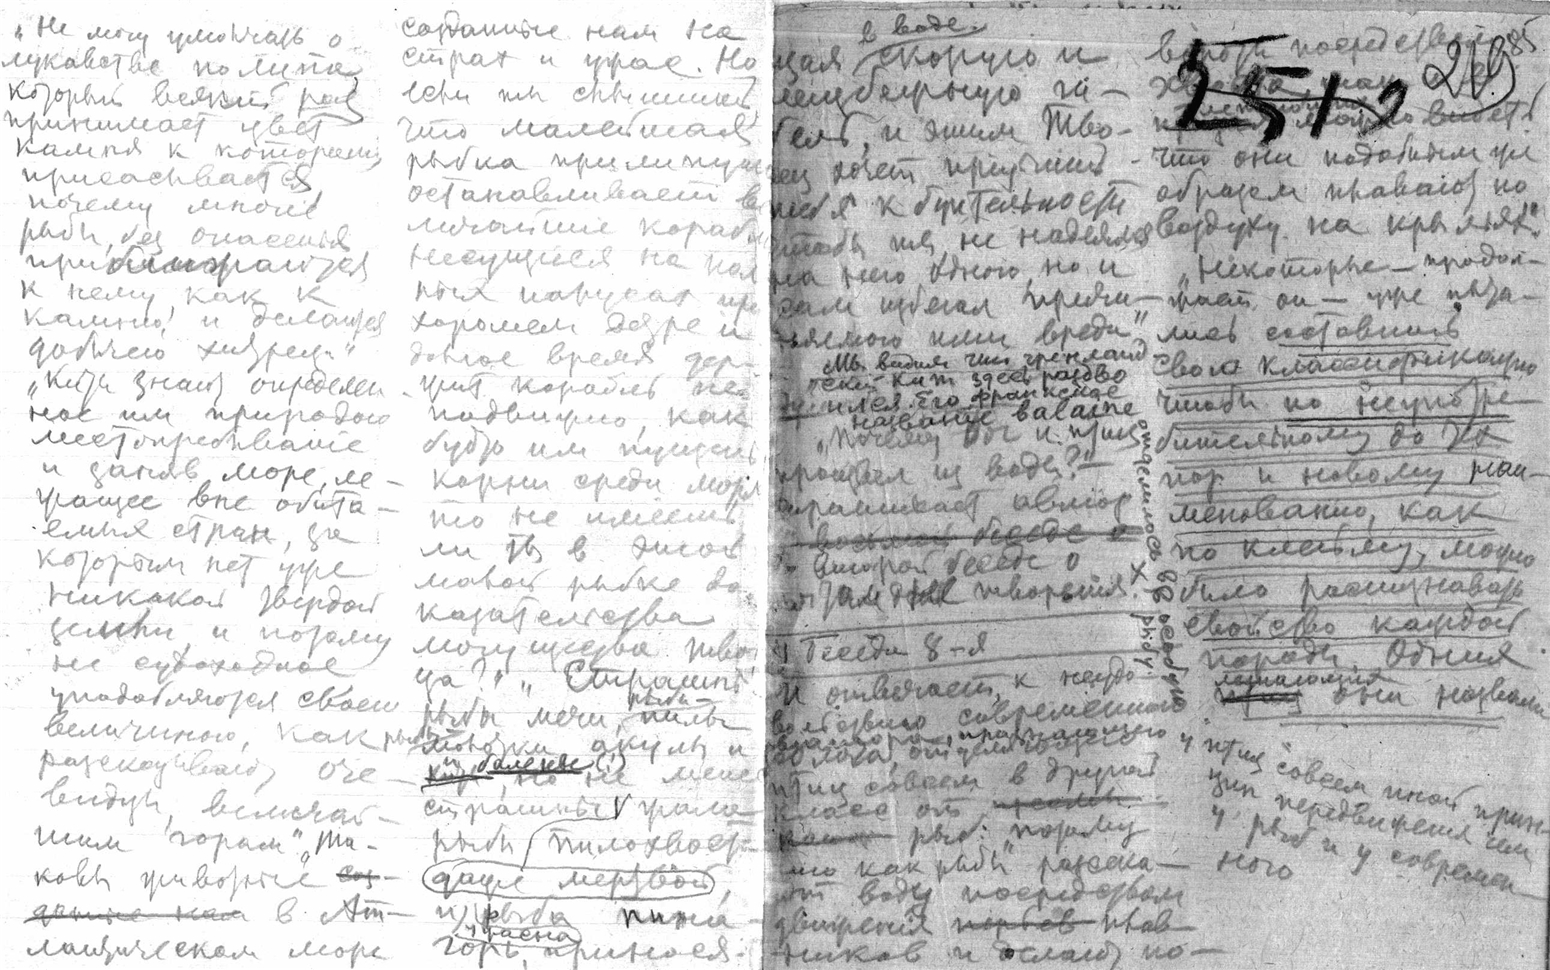 „Не могу умолчать о
лукавстве полипа,
который всякий раз
принимает цвет
камня к которому
присасывается,
почему многие
рыбы, без опасенья
приближаются
к нему, как к
камню, и делаются
добычею хитреца."
„Киты знают определен-
ное им природою
местопребывание
и заняв море, ле-
жащее вне обита-
емых стран, за
которым нет уже
никакой твердой
земли, и потому
не судоходное
уподобляются своею
величиною, как
рассказывают оче-
видцы, величай-
шим горам". „Та-
ковы животные
в Ат-
лантическом море
созданные нам на
страх и ужас. Но
если ты слышишь
что малейшая
рыбка прилипнув
останавливает ве
личайшие корабл
несущиеся на пол
ных парусах при
хорошем ветре и
долгое время дер-
жит корабль не
подвижно, как
будто им пущены
корни среди моря
то не имеешь
ли ты в этой
малой рыбке до-
казательства
могущества твор
ца?" „Страшны
рыбы мечи, рыбы-пилы
акулы и
киты балены (!)
но не менее
страшны
рыбы пилохвост-
даже мертвой,
и рыба
принося-
щая в воде скорую и
неизбежную ги-
бель, и этим Тво-
рец хочет приучить
тебя к бдительности
чтобы ты не надеялся
на него одного но и
сам избегал причи-
няемого ими вреда"
Мы видим что гренланд
ский кит здесь раздво
ился. Его французское
название baleine
отделилось в особую X рыбу.
„Почему Бог и птиц
произвел из воды?" –
спрашивает автор
в второй беседе о
шестом дне творенья.
Беседа 8-я
И отвечает, к неудо-
вольствию современного
птиц совсем в другой
класс от
рыб: „потому
что как рыбы рассека-
ют воду посредством
движения плав-
ников и делают по-
вороты посредством
хвоста, так и у
можно видеть
что они подобным же
образом плавают по
воздуху на крыльях".
„Некоторые – продол-
жает он – уже пыта-
лись составить
свою классификацию
чтобы по неупотре-
бительному до тех
пор и новому наи-
менованию, как
по клейму, можно
было распознавать
свойство каждой
породы. Одних
они назвали
у птиц совсем иной прин-
цип передвижения чем
у рыб и у современ-
ного
2512
285